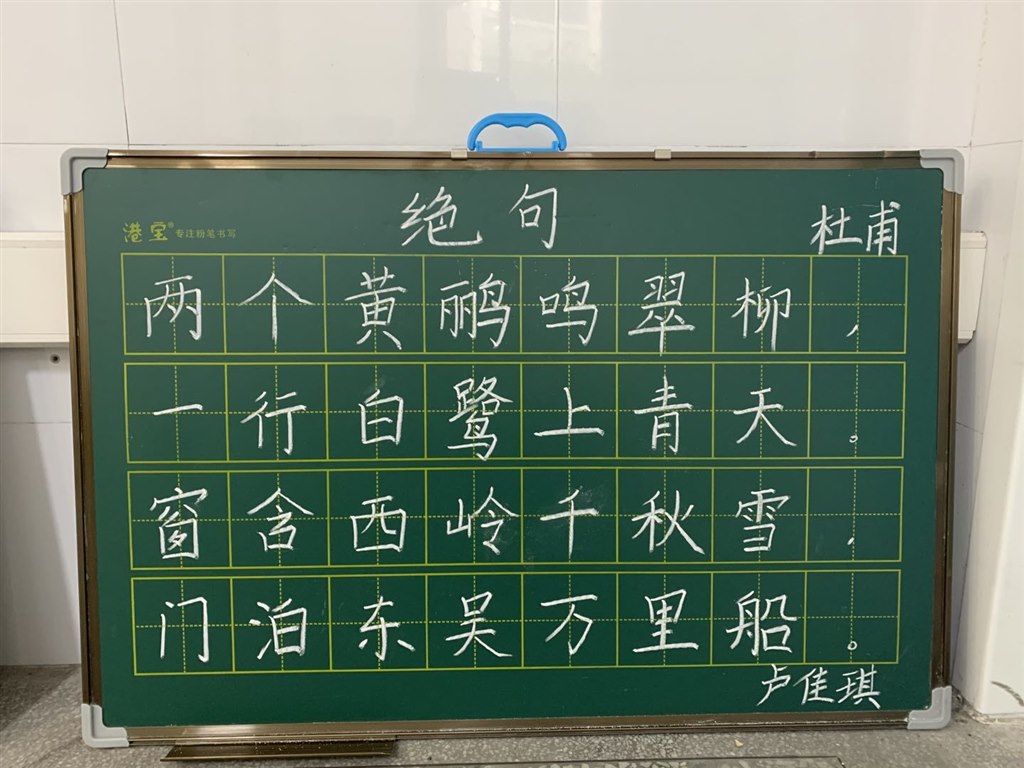 绝句
杜甫
港宝® 专注粉笔书写
两个黄鹂鸣翠柳，
一行白鹭上青天。
窗含西岭千秋雪，
门泊东吴万里船。
卢佳琪